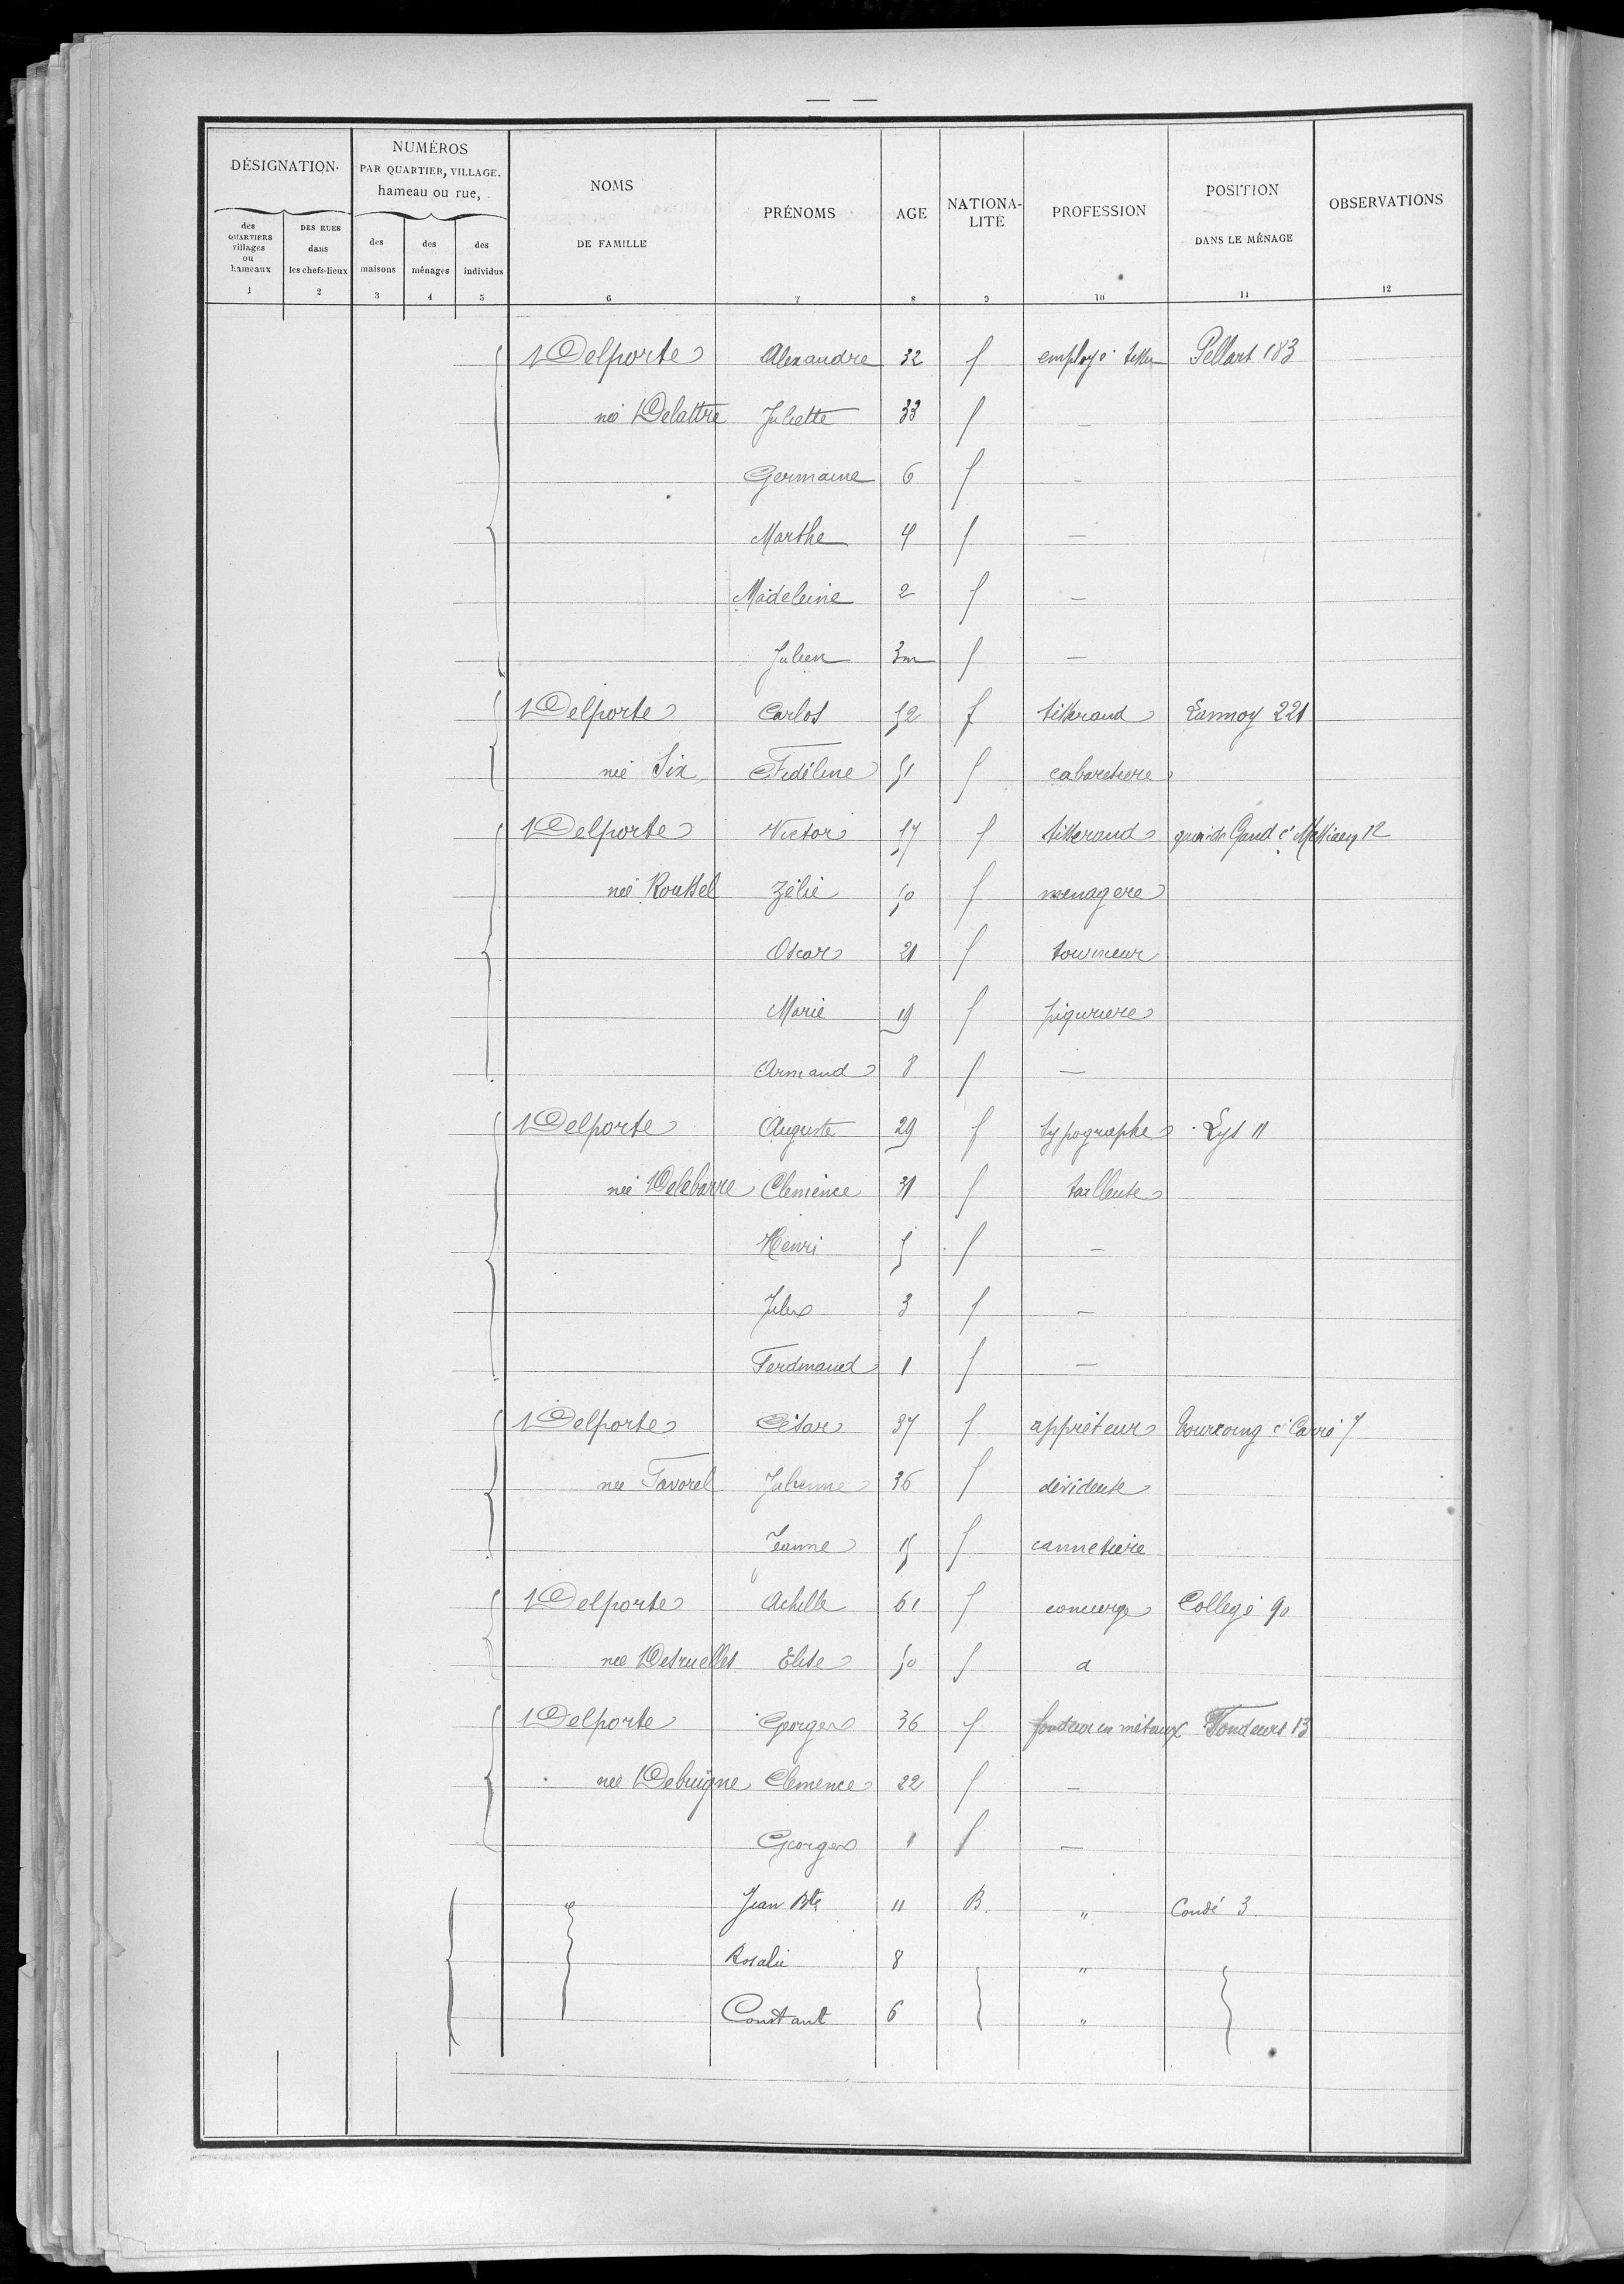 DÉSIGNATION
NUMÉROS PAR QUARTIER, VILLAGE. hameau ou rue,
NOMS DE FAMILLE
PRÉNOMS
AGE
NATIONA-LITÉ
PROFESSION
POSITION DANS LE MÉNAGE
OBSERVATIONS
des QUARTIERS villages ou hameaux
DES RUES dans les chefs-lieux
des maisons
des ménages
des individus
1 2 3 4 5 6 7 8 9 10 11 12
Delporte Alexandre 32 f employé Pellart 183
née Delattre Juliette 33 f —
Germaine 6 f -
Marthe 4 f —
Madeleine 2 f —
Julien 3m f —
Delporte Carlos 52 f tisserand Lannoy 221
née Six Fidéline 51 f cabaretiere
Delporte Victor 57 f tisserand quai de Gand c' 12
née Roussel Zélie 50 f menagere
Oscar 21 f tourneur
Marie 19 f piquriere
Armand 8 f —
Delporte Auguste 29 f typographe Lys 11
née Delebarre Clemence 31 f tailleuse
Henri 5 f —
Jules 3 f —
Ferdinand 1 f —
Delporte César 37 f apprêteur Tourcoing c' Carré 7
née Favorel Julienne 36 f dévideuse
Jeanne 15 f cannetiere
Delporte Achille 61 f concierge College 90
née Desruelles Elise 50 f d
Delporte Georges 36 f fondeur en métaux Fondeurs 13
née Debuigne Clemence 22 f —
Georges 1 f —
Jean Bte 11 B. " Condé 3.
Rosalie 8 "
Constant 6 "